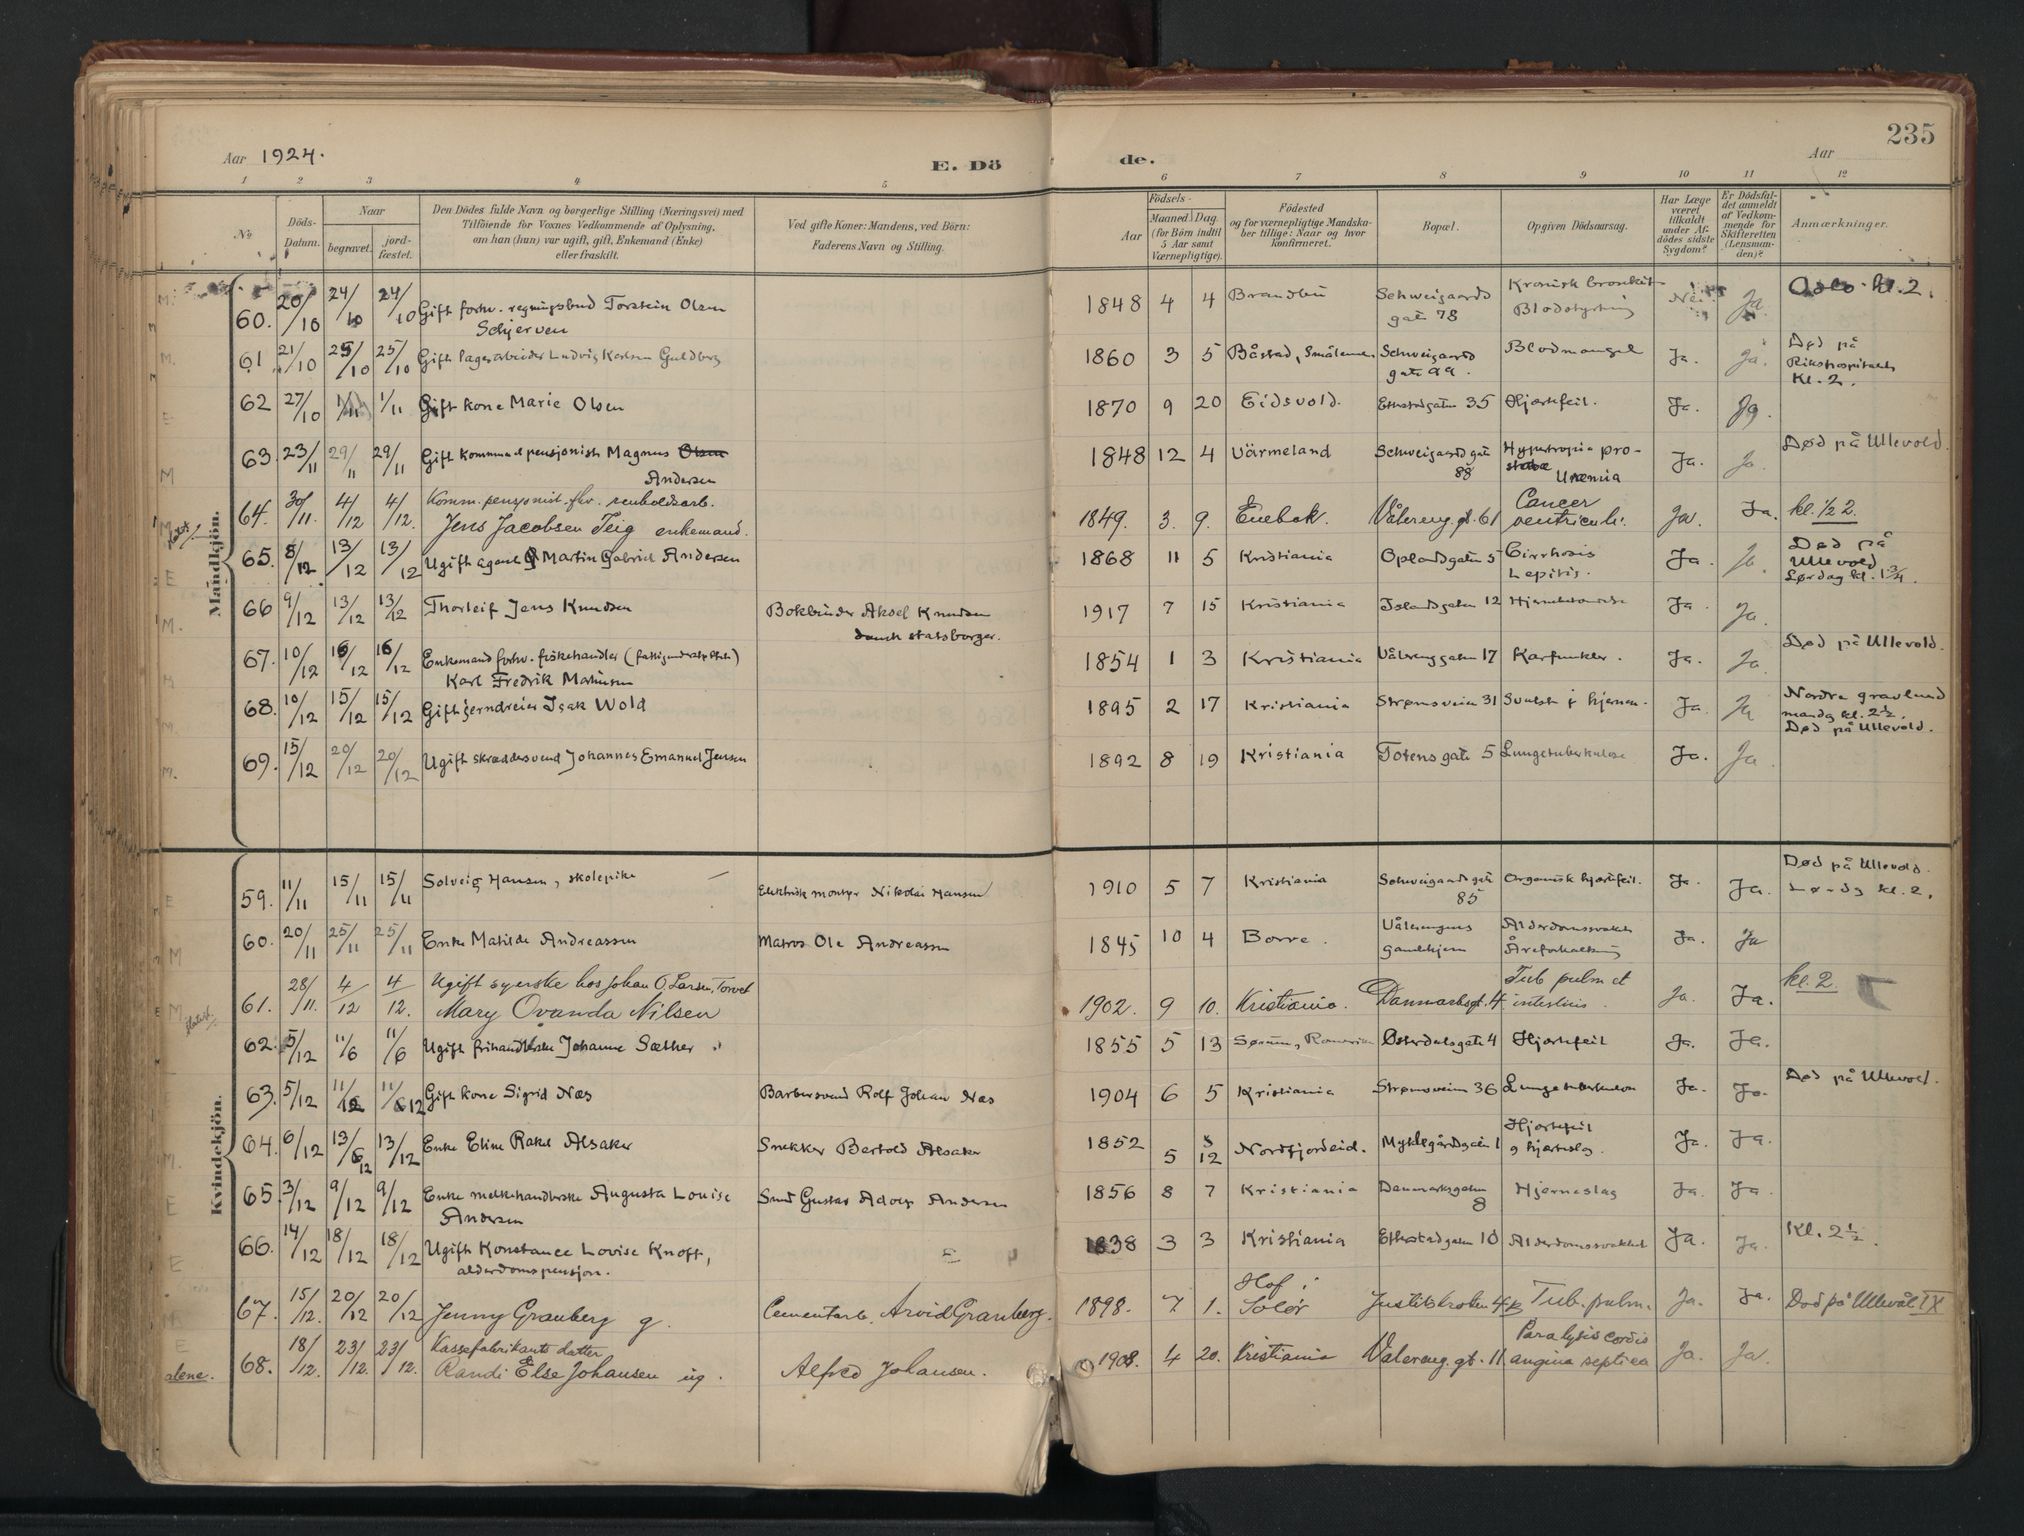 235
Aar 1924.
E. Dö
de.
Aar
1 2 3 4 5 6 7 8 9 10 11 12
No
Döds-Datum.
Naar
begravet.
jord-fæstet.
Den Dödes fulde Navn og borgerlige Stilling (Næringsvei) med
Tilföiende for Voxnes Vedkommende af Oplysning,
om han (hun) var ugift, gift, Enkemand (Enke)
eller fraskilt.
Ved gifte Koner: Mandens, ved Börn:
Faderens Navn og Stilling.
Aar
Födsels-
Maaned Dag
(for Börn indtil
5 Aar samt
Værnepligtige).
Födested
og for værnepligtige Mandska-
ber tillige: Naar og hvor
konfirmeret.
Bopæl.
Opgiven Dödsaarsag.
Har Læge
været
tilkaldt
under Af-
dödes sidste
Sygdom?
Er Dödsfal-
det anmeldt
af Vedkom-
mende for
Skifteretten
(Lensman-
den)?
Anmærkninger.
Mandkjön.
60. 20/10 24/10 24/10 Gift forhv. regningsbud Torstein Olsen Schjerven 1848 4 4 Brandbu Schweigaards gate 78 Kronisk bronkit Blodstyrtning Nei Ja Oslo kl. 2.
61 21/10 25/10 25/10 Gift lagerarbeider Ludvig Karlsen Guldberg 1860 3 5 Båstad, Smålenene Schweigaards gate 99. Blodmangel Ja. Ja. Død på Rikshospitalet Kl. 2.
62 27/10 1/11 1/11 Gift kone Marie Olsen 1870 9 20 Eidsvold. Etterstadgaten 35 Hjærtefeil. Ja. Ja.
63. 23/11 29/11 29/11 Gift kommunal pensjonist Magnus Olsen Andersen 1848 12 4 Värmeland Schweigaards gate 88 Hypertropia prostatae Uræmia Ja. Ja. Død på Ullevold.
64. 30/11. 4/12 4/12. Komm. pensjonist. fhv. renholdsarb. Jens Jacobsen Teig enkemand. 1849. 3. 9. Enebak. Vålereng.gt. 61 Cancer ventriculi. Ja. Ja. kl. 1/2 2.
65. 8/12 13/12 13/12 Ugift agent Martin Gabriel Andersen 1868 11 5 Kristiania Oplandgaten 5 Cirrhosis hepitis. Ja. Ja. Død på Ullevold Lørdag kl. 1 3/4.
66 9/12 13/12 13/12 Thorleif Jens Knudsen Bokbinder Aksel Knudsen dansk statsborger. 1917 7 15 Kristiania Islandsgaten 12 Ja. Ja.
67. 10/12 16/12 16/12 Enkemand forhv. fiskehandler (fattigunderstøttet) Karl Fredrik Mathisen 1854 1 3 Kristiania Vålerenggaten 17 Karfunkler. Ja. Ja Død på Ullevold.
68. 10/12 15/12 15/12 Gift jerndreier Isak Wold 1895 2 17 Kristiania Strømsveien 31 Svulst i hjernen. Ja. Ja Nordre gravlund mandag kl. 2 1/2. Død på Ullevold.
69. 15/12 20/12 20/12 Ugift skræddersvend Johannes Emanuel Jensen 1892 8 19 Kristiania Totens gate 5 Lungetuberkulose Ja. Ja
Kvindekjön.
59. 11/11 15/11 15/11 Solveig Hansen, skolepike Elektrisk montør Nikolai Hansen 1910 5 7 Kristiania Schweigaards gate 85 Organisk hjærtefeil. Ja. Ja. Død på Ullevold. Lørdag kl. 2.
60. 20/11 25/11 25/11 Enke Matilde Andreassen Matros Ole Andreassen 1845 10 4 Borre. Vålerengens gamlehjem Alderdomssvakhet Åreforkalkning Ja. Ja
61. 28/11. 4/12 4/12. Ugift syerske hos Johan O. Larsen, Torvet Mary Ovanda Nilsen 1902. 9 10. Kristiania. Danmarksgt. 4. Tub pulm et intestinis. Ja. Ja. kl. 2.
62. 5/12 11/6 11/6 Ugift frihandlerske Johanne Sæther 1855 5 13 Sørum, Romerike Østerdalsgate 4 Hjærtefeil Ja. Ja.
63. 5/12 11/12 11/12 Gift kone Sigrid Næs Barbersvend Rolf Johan Næs 1904 6 5 Kristiania Strømsveien 36 Lungetuberkulose Ja. Ja. Død på Ullevold.
64. 6/12 13/12 13/12 Enke Eline Rakel Alsaker Snekker Bertold Alsaker 1852 5 12 Nordfjordeid. Myklegårdsgaten 1 Hjertefeil og hjerteslag. Ja. Ja.
65. 3/12 9/12 9/12 Enke melkehandlerske Augusta Louise Andersen Smed Gustav Adolf Andersen 1856 8 7 Kristiania Danmarksgaten 8 Hjerneslag Ja. Ja.
66. 14/12 18/12 18/12 Ugift Konstance Lovise Knoft, alderdomspensjon. 1838 3 3 Kristiania Etterstadgaten 10 Alderdomssvakhet Ja. Ja. Kl. 2 1/2.
67. 15/12. 20/12 20/12 Jenny Granberg g. Cementarb. Arvid Granberg. 1898. 7 1. Hof i Solør Justitskroken 4 Tub. pulm. Ja. Ja. Død på Ullevål IX
68. 18/12. 23/12. 23/12. Kassefabrikants datter Randi Else Johansen ug. Alfred Johansen. 1908. 4 20. Kristiania Valereng.gt. 11 Paralysis cordis angina septica Ja. Ja.